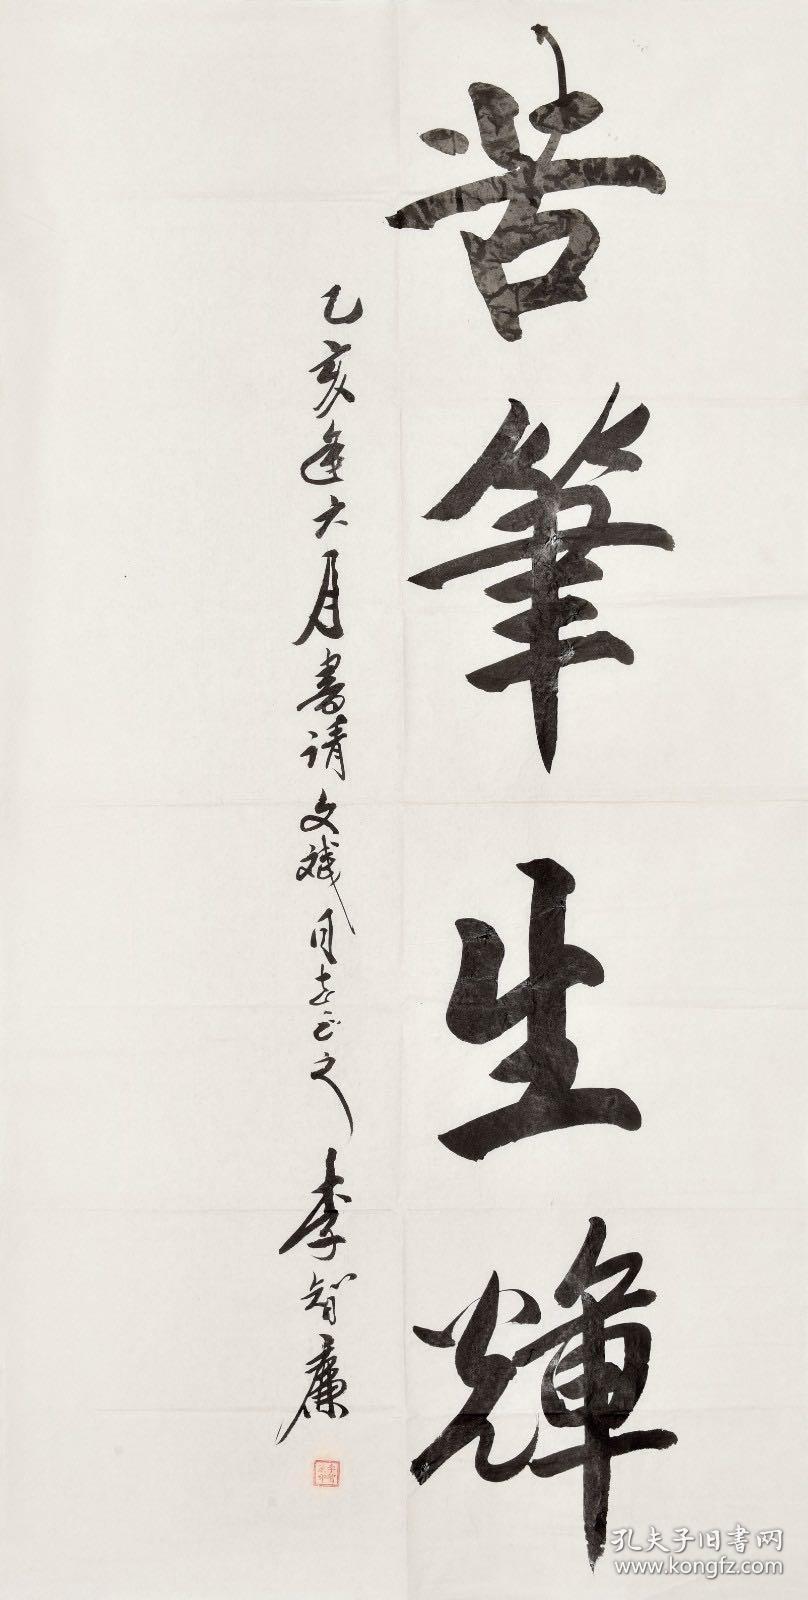 苦筆生輝
乙亥年六月書请文斌同志正之
李智廉
孔夫子旧書网
www.kongfz.com